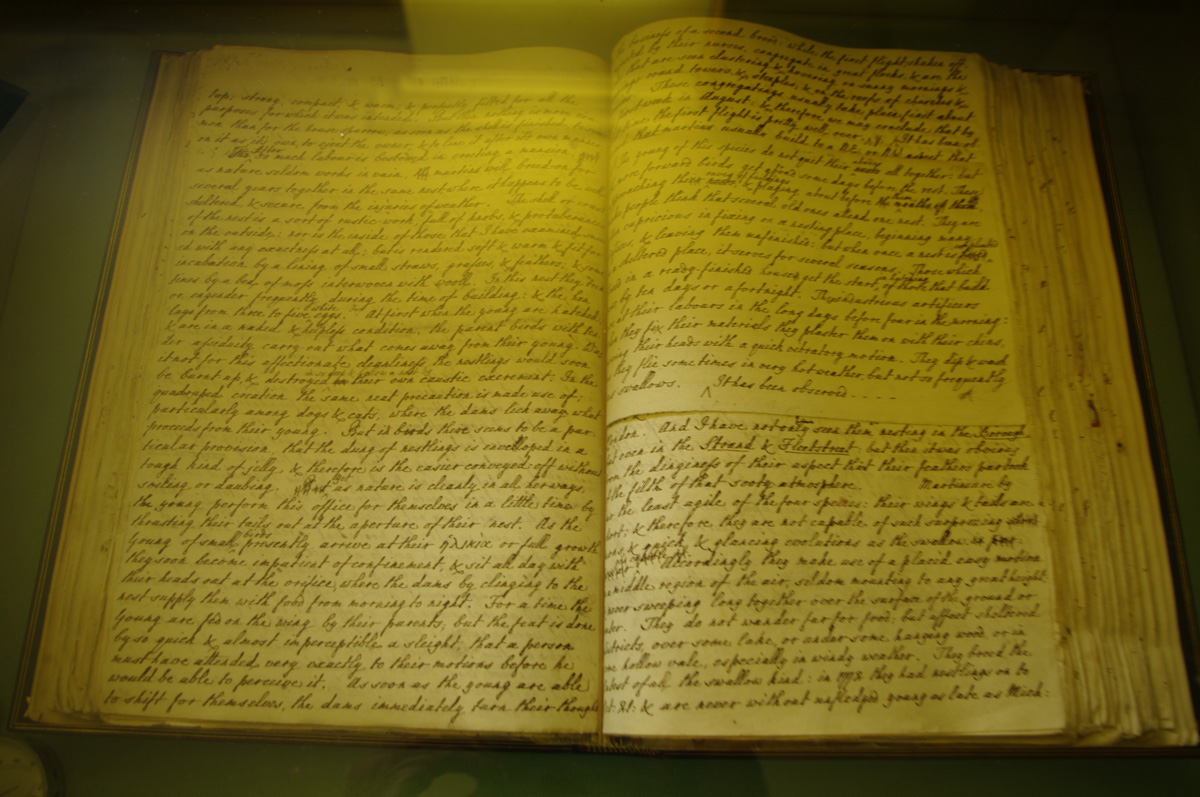 top; strong, compact, & warm; & perfectly fitted for all the
purposes for which it was intended. But nothing is more com-
mon than for the house-sparrow, as soon as the shell is finished, to seize
on it as its own, to eject the owner, & to line it after its own manner.
After so much labour is bestowed in erecting a mansion,
as nature seldom works in vain, martins will breed on for
several years together in the same nest where it happens to be well
sheltered, & secure from the injuries of weather. The shell or crust
of the nest is a sort of rustic work, full of knobs, & protuberances
on the outside: nor is the inside of those that I have examined
ed with any exactness at all; but is rendered soft & warm & fit for
incubation by a lining of small straws, grasses, & feathers; & some
times by a bed of moss interwoven with wool. In this nest they tread
or engender frequently during the time of building: & the hen
lays from three to five white eggs. At first when the young are hatched,
& are in a naked & helpless condition, the parent birds with ten
der assiduity carry out what comes away from their young. Was
it not for this affectionate cleanliness the nestlings would soon
be burnt up, & destroyed their own caustic excrement: In the
quadruped creation the same neat precaution is made use of;
particularly among dogs & cats, where the dams lick away what
proceeds from their young. But in birds there seems to be a par-
ticular provision, that the dung of nestlings is envelloped in a
tough kind of jelly, & therefore is the easier conveyed off without
soiling or daubing. as nature is cleanly in all her ways,
the young perform this office for themselves in a little time by
thrusting their tails out at the aperture of their nest. As the
young of small birds presently arrive at their ηλικια or full growth
they soon become impatient of confinement, & sit all day with
their heads out at the orifice, where the dams by clinging to the
nest supply them with food from morning to night. For a time the
young are fed on the wing by their parents; but the feat is done
by so quick & almost imperceptible a sleight, that a person
must have attended very exactly to their motions before he
would be able to perceive it. As soon as the young are able
to shift for themselves, the dams immediately turn their thoughts
business of a second brood: while the first flight, shaken off
by their nurses, congregate in great flocks, & are the
that are seen clustering, & hovering on sunny mornings &
round towers, & steeples, & on the roofs of churches &
Those congregatings usually take place first about
first week in August; & therefore we may conclude, that by
the first flight is pretty well over. It has been ob
that martins usually build to a N.E. or N.W. aspect that
The young of this species do not quit their abodes all together: but
more forward birds get abroad some days before the rest. These
approaching the eaves of buildings, & playing about before them
people think that several old ones attend one nest. They are
capricious in fixing on a nesting place, beginning many
& leaving them unfinished: but when once a nest is completed
in sheltered place, it serves for several seasons. Those which
in a ready-finished house get the start of those that build
by ten days or a fortnight. These industrious artificers
at their labours in the long days before four in the morning:
they fix their materials they plaster them on with their chins,
ing their heads with a quick vibratory motion. They dip & wash
they flie sometimes in very hot weather, but not so frequently
swallows. It has been observed - - - -
London. And I have not only seen them nesting in the Borough
but even in the Strand & Fleetstreet: but then it was obvious
from the dinginess of their aspect that their feathers partook
the filth of that sooty atmosphere. Martins are by
far the least agile of the four species: their wings & tails are
short; & therefore they are not capable of such surprising
turns & quick & glancing evolutions as the swallow.
Accordingly they make use of a placid easy motion
middle region of the air, seldom mounting to any great height
never sweeping long together over the surface of the ground or
water. They do not wander far for food; but affect sheltered
districts, over some lake, or under some hanging wood or in
some hollow vale, especially in windy weather. They breed the
latest of all the swallow kind: in 1772 they had nestlings on to
21: & are never without unfledged young as late as Mich: